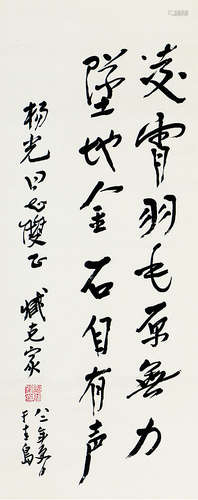 凌霄羽毛原无力
墜地金石自有声
杨光同志雙正
臧克家
八二年夏日
于青島